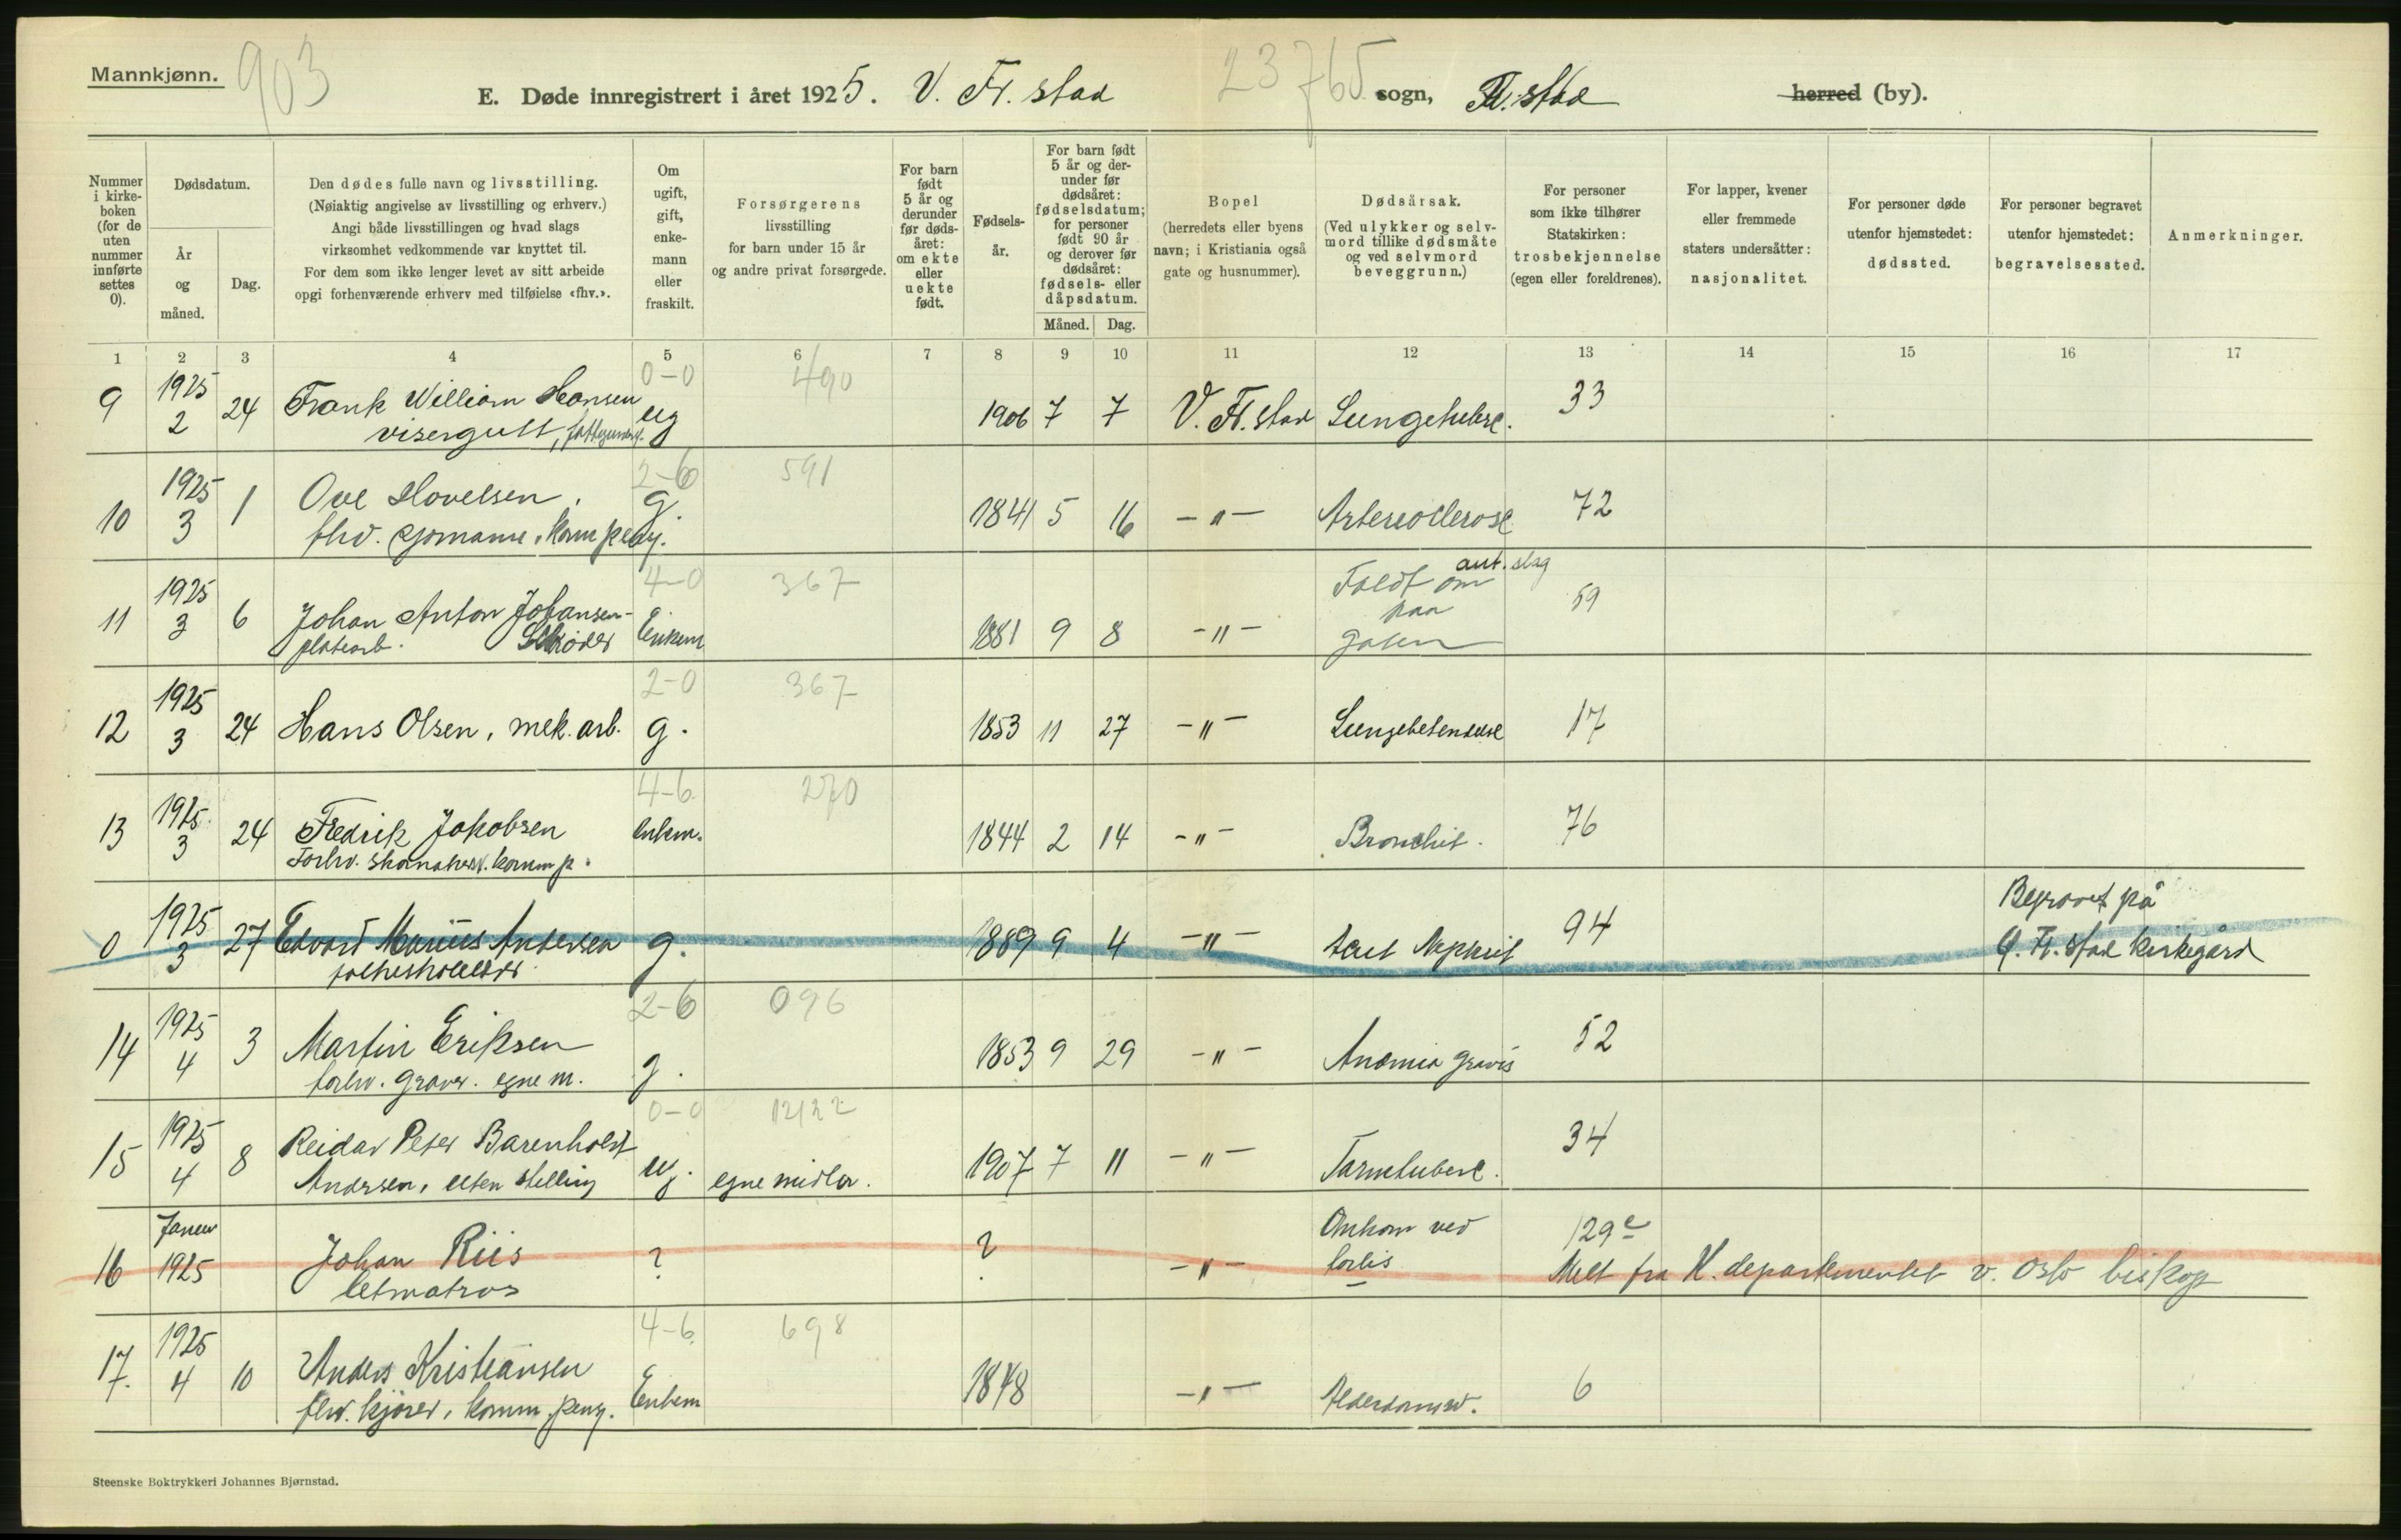 Mannkjønn.
903
E. Døde innregistrert i året 1925. V. Fr. stad
23765
sogn, Fr. stad herred (by).
Nummer i kirkeboken (for de uten nummer innførte settes 0).
Dødsdatum.
År og måned.
Dag.
Den dødes fulle navn og livsstilling.
(Nøiaktig angivelse av livsstilling og erhverv.)
Angi både livsstillingen og hvad slags
virksomhet vedkommende var knyttet til.
For dem som ikke lenger levet av sitt arbeide
opgi forhenværende erhverv med tilføielse «fhv.».
Om ugift, gift, enkemann eller fraskilt.
Forsørgerens
livsstilling
for barn under 15 år
og andre privat forsørgede.
For barn født 5 år og derunder før dødsåret: om ekte eller uekte født.
Fødselsår.
For barn født 5 år og derunder før dødsåret: fødselsdatum; for personer født 90 år og derover før dødsåret: fødsels- eller dåpsdatum.
Måned. Dag.
Bopel
(herredets eller byens
navn; i Kristiania også
gate og husnummer).
Dødsårsak.
(Ved ulykker og selvmord tillike dødsmåte og ved selvmord beveggrunn.)
For personer
som ikke tilhører
Statskirken:
trosbekjennelse
(egen eller foreldrenes).
For lapper, kvener
eller fremmede
staters undersåtter:
nasjonalitet.
For personer døde
utenfor hjemstedet:
dødssted.
For personer begravet
utenfor hjemstedet:
begravelsessted.
Anmerkninger.
1 2 3 4 5 6 7 8 9 10 11 12 13 14 15 16 17
0-0 490
9 1925 2 24 Frank William Hansen ug 1906 7 7 V. Fr. stad Lungetuberc. 33
visergutt,
2-6 591
10 1925 3 1 Ove Hovelsen. g. 1841 5 16 -"- 72
fhv.
4-0 367
11 1925 3 6 Johan Anton Johansen- Enkem 1881 9 8 -"- Faldt om ant. slag 59
platearb. Schrøder
paa
gaten
2-0 367
12 1925 3 24 Hans Olsen, mek. arb. g. 1853 11 27 -"- Lungebetendelse 17
4-6. 270
13 1925 3 24 Fredrik Jakobsen Enkem. 1844 2 14 -"- Bronchit. 76
Forhv.
0 1925 3 27 Edvard Marius Andersen g. 1889 9 4 -"- Acut Nephrit 94 Begravet på
Ø. Fr. stad kirkegård
2-6 096
14 1925 4 3 Martin Eriksen g. 1853 9 29 -"- Anæmia gravis 52
forhv. graver. egne m.
0-0 12122
15 1925 4 8 Reidar Peter Barenholdt ug. egne midler. 1907 7 11 -"- Tarmtuberc. 34
Andersen, uten stilling
16 Januar 1925 Johan Riis ? ? -"- Omkom ved 129e
letmatros forlis Melt fra K. departementet v. Oslo biskop
4-6. 698
17. 1925 4 10 Anders Kristiansen Enkem 1848 -"- Alderdomssv. 6
fhv. kjører, komm. peng.
Steenske Boktrykkeri Johannes Bjørnstad.